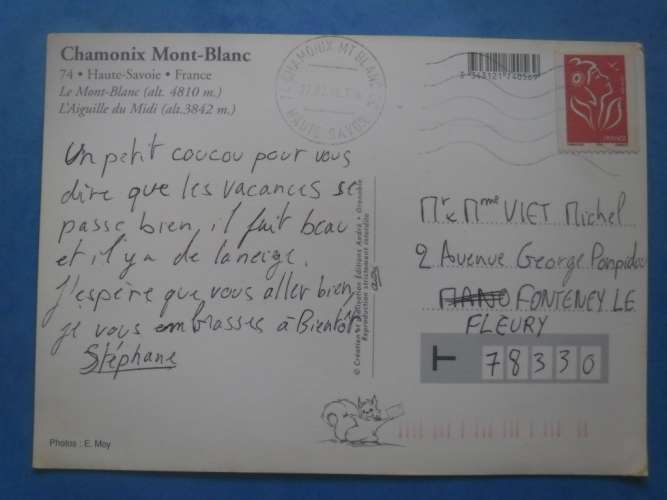 Chamonix Mont-Blanc
74 • Haute-Savoie • France
Le Mont-Blanc (alt. 4810 m.)
L'Aiguille du Midi (alt.3842 m.)
Un petit coucou pour vous
dire que les vacances se
passe bien, il fait beau
et il y a de la neige.
J'espère que vous aller bien,
je vous embrasses à Bientôt
Stéphane
Photos : E. Moy
© Création et production Éditions André • Grenoble
Reproduction strictement interdite
74 CHAMONIX MT BLANC
HAUTE SAVOIE
3 343121 740569
FRANCE
Mr & Mme VIET Michel
2 Avenue George Pompidou
FONTENEY LE
FLEURY
78330